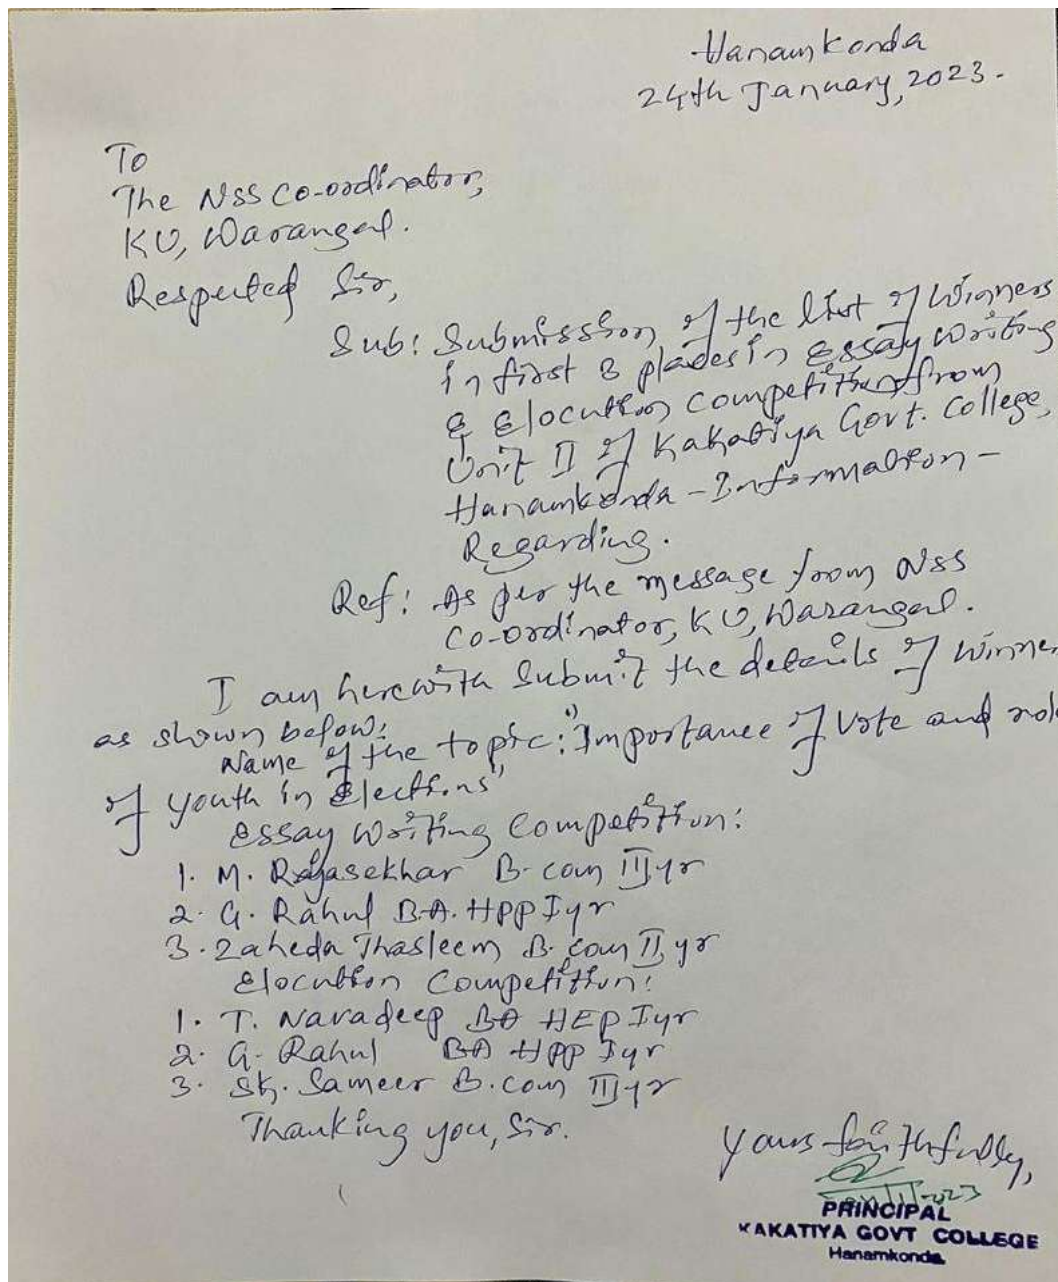 Hanamkonda
24th January, 2023.
To
The NSS Co-ordinator,
KU, Warangal.
Respected Sir,
Sub: Submission of the list of Winners
in first 3 places in Essay Writing
& Elocution competitions from
Unit II of Kakatiya Govt. College,
Hanamkonda - Information -
Regarding.
Ref: As per the message from NSS
Co-ordinator, KU, Warangal.
I am herewith submit the details of winner
as shown below:
Name of the topic: "Importance of Vote and role
of youth in Elections"
Essay Writing Competition:
1. M. Rajasekhar B.com III yr
2. G. Rahul B.A. HPP I yr
3. Zaheda Thasleem B.com II yr
Elocution Competition:
1. T. Navadeep BA HEP I yr
2. G. Rahul BA HPP I yr
3. Sk. Sameer B.com III yr
Thanking you, Sir.
Yours faithfully,
PRINCIPAL
KAKATIYA GOVT COLLEGE
Hanamkonda